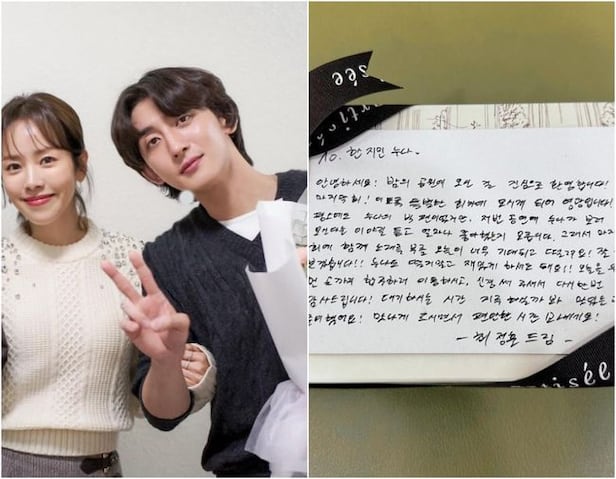 isée
artisée
To. 한지민 누나.
안녕하세요! 밤의 공원에 오신 걸 진심으로 환영합니다!
마지막회! 이토록 특별한 회차에 모시게 되어 영광입니다!
팬으로도 누나의 편이었거든. 저번 공연에 누나가 보러
오신다는 이야길 듣고 얼마나 좋아했는지 모릅니다. 그래서 마지
회에 함께 노래를 부를 오늘이 너무 기대되고 떨려요! 잘
보겠습니다!! 누나도 떨지말고 재밌게 하셔도 돼요!! 오늘
먼 손가 합주하러 이동하시고, 신경써 주셔서 다시한번
감사드립니다! 대기하는 시간 지루하실까봐 맛있는
준비했어요! 맛나게 드시면서 편안한 시간 보내세요!
- 최정훈 드림 -
tisée